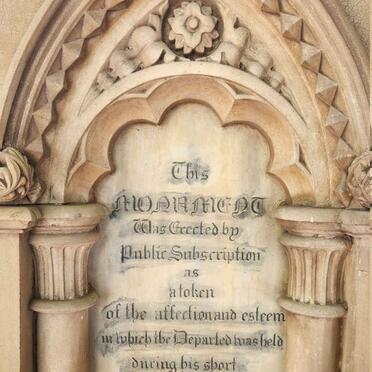 This
MONUMENT
Was Erected by
Public Subscription
as
a token
of the affection and esteem
in which the Departed was held
during his short